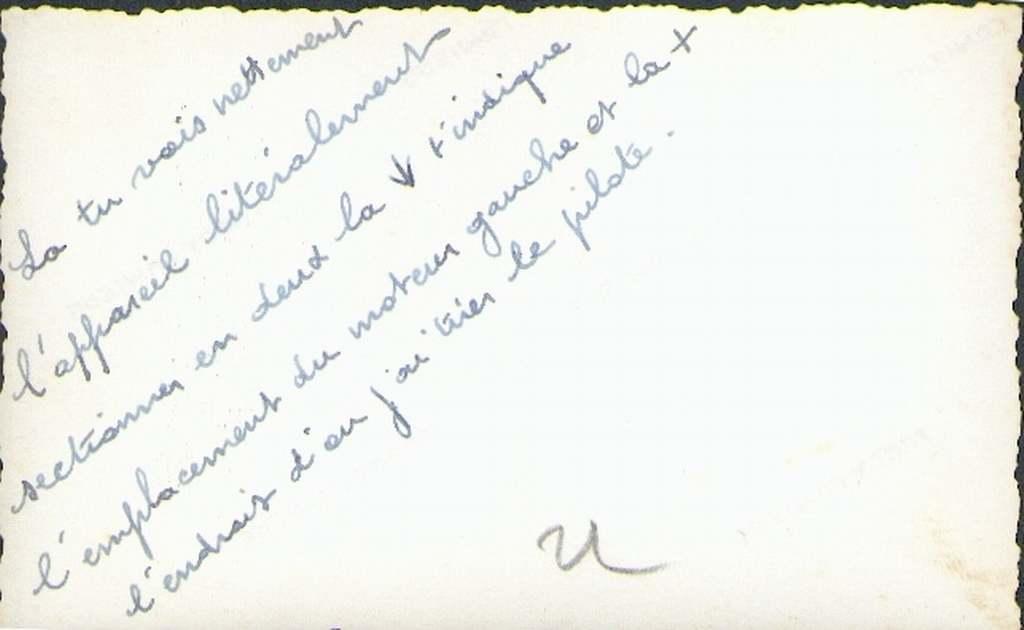 La tu vois nettement
l'appareil litéralement
sectionner en deux la ↓ t'indique
l'emplacement du moteur gauche et la +
l'endrois d'ou j'ai tirer le pilote.